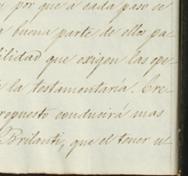 por que a cada paso se
a buena parte de ellos pa-
ilidad que exigen las ope-
la testamentaría. Cre-
ropuesto conducirá mas
Brilanti, que el tener u